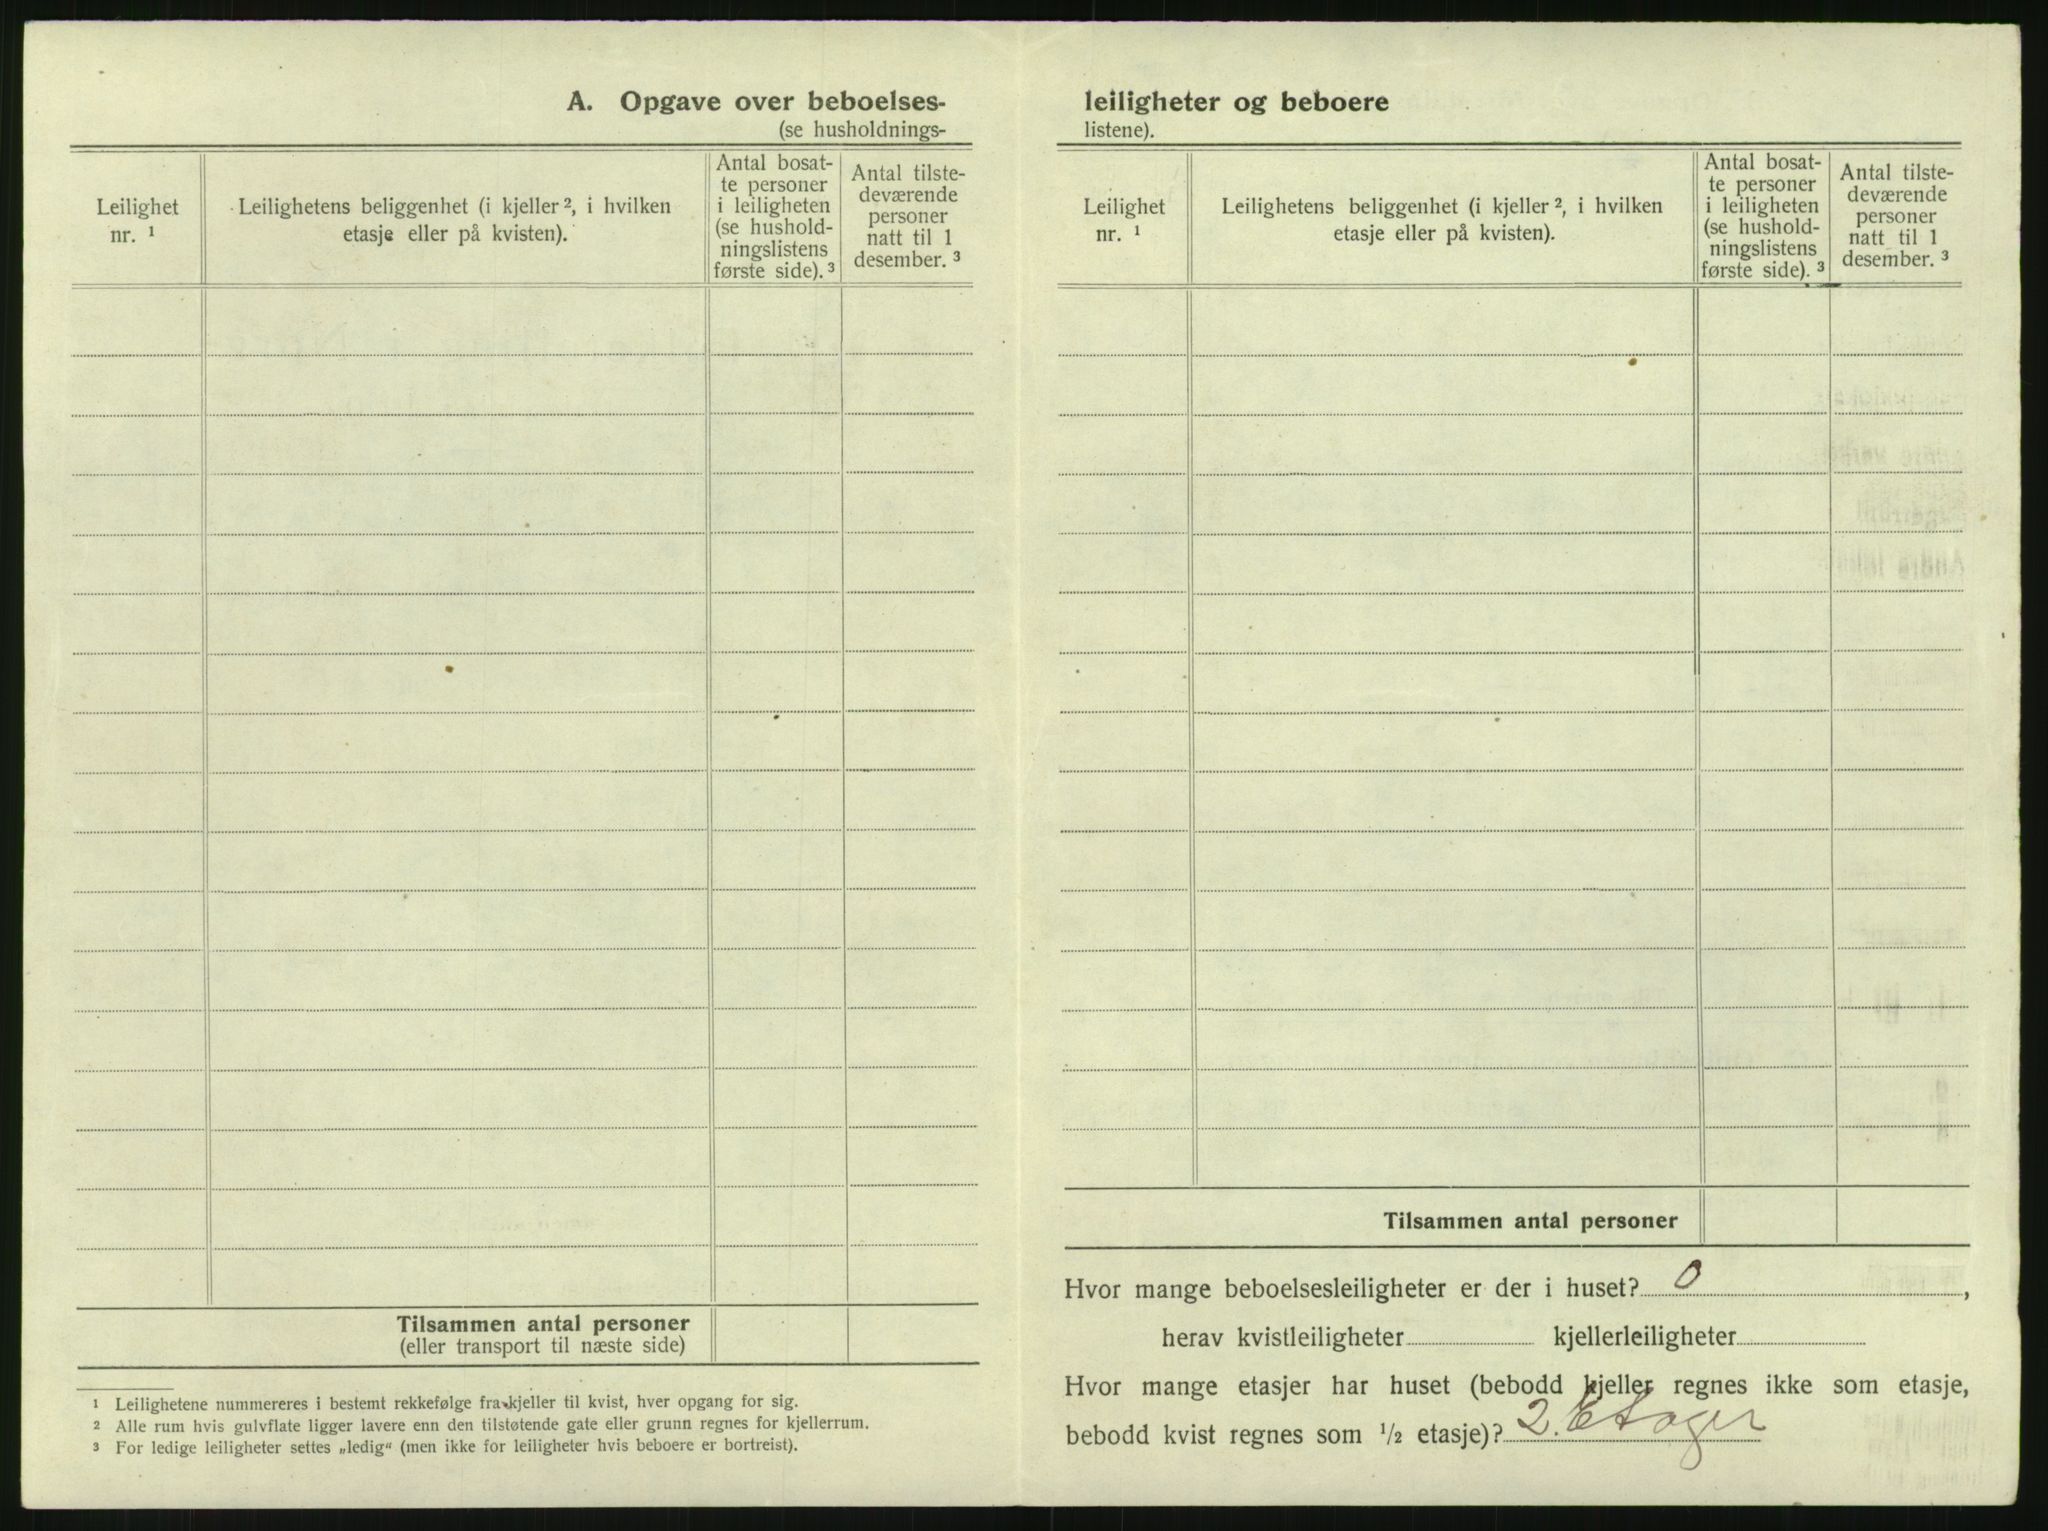 A. Opgave over beboelses-
(se husholdnings-
Leilighet
nr. ¹
Leilighetens beliggenhet (i kjeller ², i hvilken
etasje eller på kvisten).
Antal bosat-
te personer
i leiligheten
(se hushold-
ningslistens
første side). ³
Antal tilste-
deværende
personer
natt til 1
desember. ³
Tilsammen antal personer
(eller transport til næste side)
¹ Leilighetene nummereres i bestemt rekkefølge fra kjeller til kvist, hver opgang for sig.
² Alle rum hvis gulvflate ligger lavere enn den tilstøtende gate eller grunn regnes for kjellerrum.
³ For ledige leiligheter settes „ledig“ (men ikke for leiligheter hvis beboere er bortreist).
leiligheter og beboere
listene).
Leilighet
nr. ¹
Leilighetens beliggenhet (i kjeller ², i hvilken
etasje eller på kvisten).
Antal bosat-
te personer
i leiligheten
(se hushold-
ningslistens
første side). ³
Antal tilste-
deværende
personer
natt til 1
desember. ³
Tilsammen antal personer
Hvor mange beboelsesleiligheter er der i huset? 0,
herav kvistleiligheter kjellerleiligheter
Hvor mange etasjer har huset (bebodd kjeller regnes ikke som etasje,
bebodd kvist regnes som ½ etasje)? 2. Etager